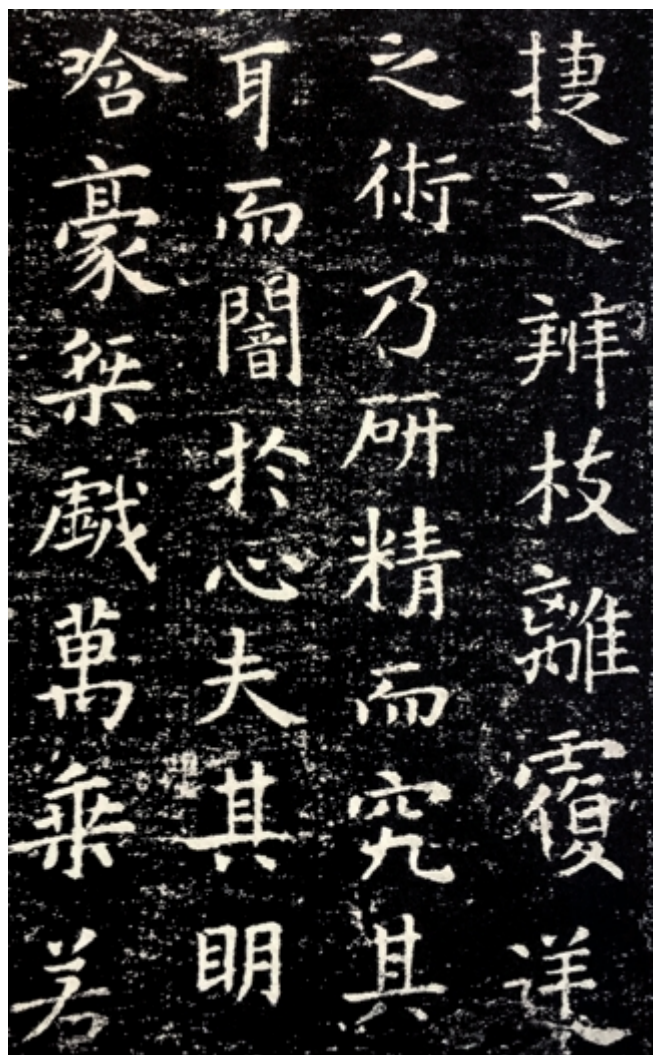 捷之辨枝離覆逆
之術乃研精而究其
耳而闇於心夫其明
哈豪桀戲萬乘若